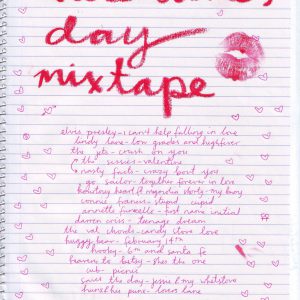 day
mixtape
elvis presley - can't help falling in love
lindy lane - low grades and high fever
the jets - crush on you
the sissies - valentine
nasty facts - crazy bout you
go sailor - together forever in love
my boy
connie francis - stupid cupid
annette funicello - first name initial
darren criss - teenage dream
the val chords - candy store love
huggy bear - february 14th
6th and santa fe
heavens to betsy - she's the one
cub - picnic
save the day - jessie & my whetstone
love